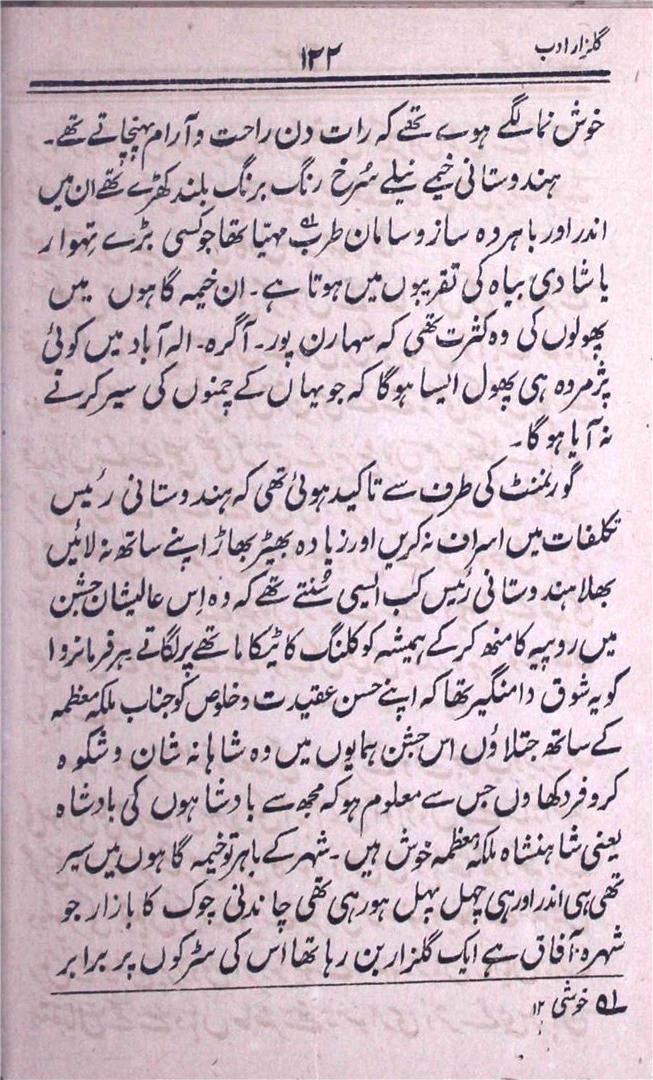 گلزار ادب
۱۲۲
خوش نما لگے ہوے تھے کہ رات دن راحت و آرام پہنچاتے تھے۔
ہندوستانی خیمے نیلے سُرخ رنگ برنگ بلند کھڑے تھے ان میں
اندر اور باہر وہ ساز و سامان طرب ۱؎ مہیّا تھا جو کسی بڑے تہوار
یا شادی بیاہ کی تقریبوں میں ہوتا ہے۔ ان خیمہ گاہوں میں
پھولوں کی وہ کثرت تھی کہ سہارن پور۔ آگرہ۔ الہ آباد میں کوئی
پژمردہ ہی پھول ایسا ہوگا کہ جو یہاں کے چمنوں کی سیر کرنے
نہ آیا ہوگا۔
گورنمنٹ کی طرف سے تاکید ہوئی تھی کہ ہندوستانی رئیس
تکلفات میں اسراف نہ کریں اور زیادہ بھیڑ بھاڑ اپنے ساتھ نہ لائیں
بھلا ہندوستانی رئیس کب ایسی سُنتے تھے کہ وہ اِس عالیشان جشن
میں روپیہ کا منھ کرکے ہمیشہ کو کلنگ کا ٹیکا ماتھے پر لگاتے ہر فرمانروا
کو یہ شوق دامنگیر تھا کہ اپنے حسن عقیدت و خلوص کو جناب ملکہ معظمہ
کے ساتھ جتلاؤں اس جشن ہمایوں میں وہ شاہانہ شان و شکوہ
کروفر دکھاوں جس سے معلوم ہو کہ مجھ سے بادشاہوں کی بادشاہ
یعنی شاہنشاہ ملکہ معظمہ خوش ہیں۔ شہر کے باہر تو خیمہ گاہوں میں سیر
تھی ہی اندر اور ہی چہل پہل ہورہی تھی چاندنی چوک کا بازار جو
شہرہ آفاق ہے ایک گلزار بن رہا تھا اس کی سڑکوں پر برابر
۱؎ خوشی ۱۲